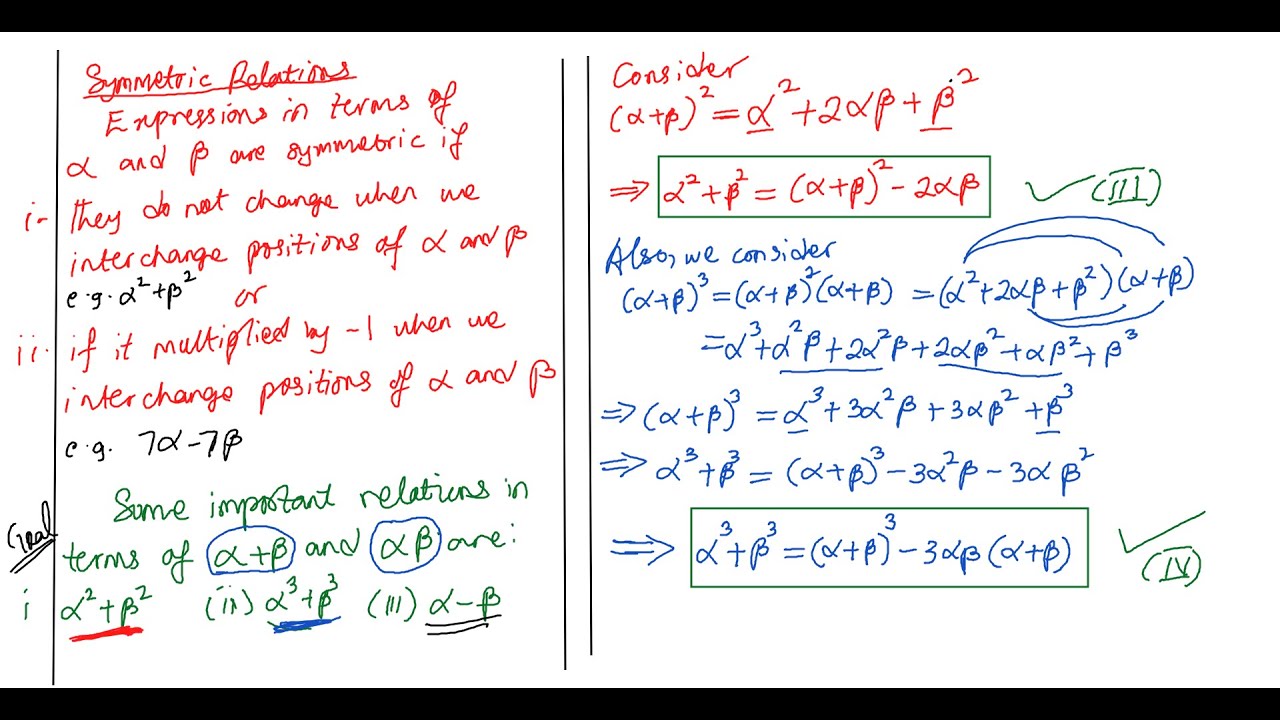 Symmetric Relations
Expressions in terms of
α and β are symmetric if
i- they do not change when we
interchange positions of α and β
e.g. α²+β² or
ii. if it multiplied by -1 when we
interchange positions of α and β
e.g. 7α-7β
Some important relations in
Goal terms of α+β and αβ are:
i α²+β² (ii) α³+β³ (iii) α-β
Consider
(α+β)² = α²+2αβ+β²
⇒ α²+β² = (α+β)² - 2αβ ✓ (III)
Also, we consider
(α+β)³ = (α+β)²(α+β) = (α²+2αβ+β²)(α+β)
= α³+α²β+2α²β+2αβ²+αβ²+β³
⇒ (α+β)³ = α³+3α²β+3αβ²+β³
⇒ α³+β³ = (α+β)³-3α²β-3αβ²
⇒ α³+β³ = (α+β)³-3αβ(α+β) ✓
(IV)